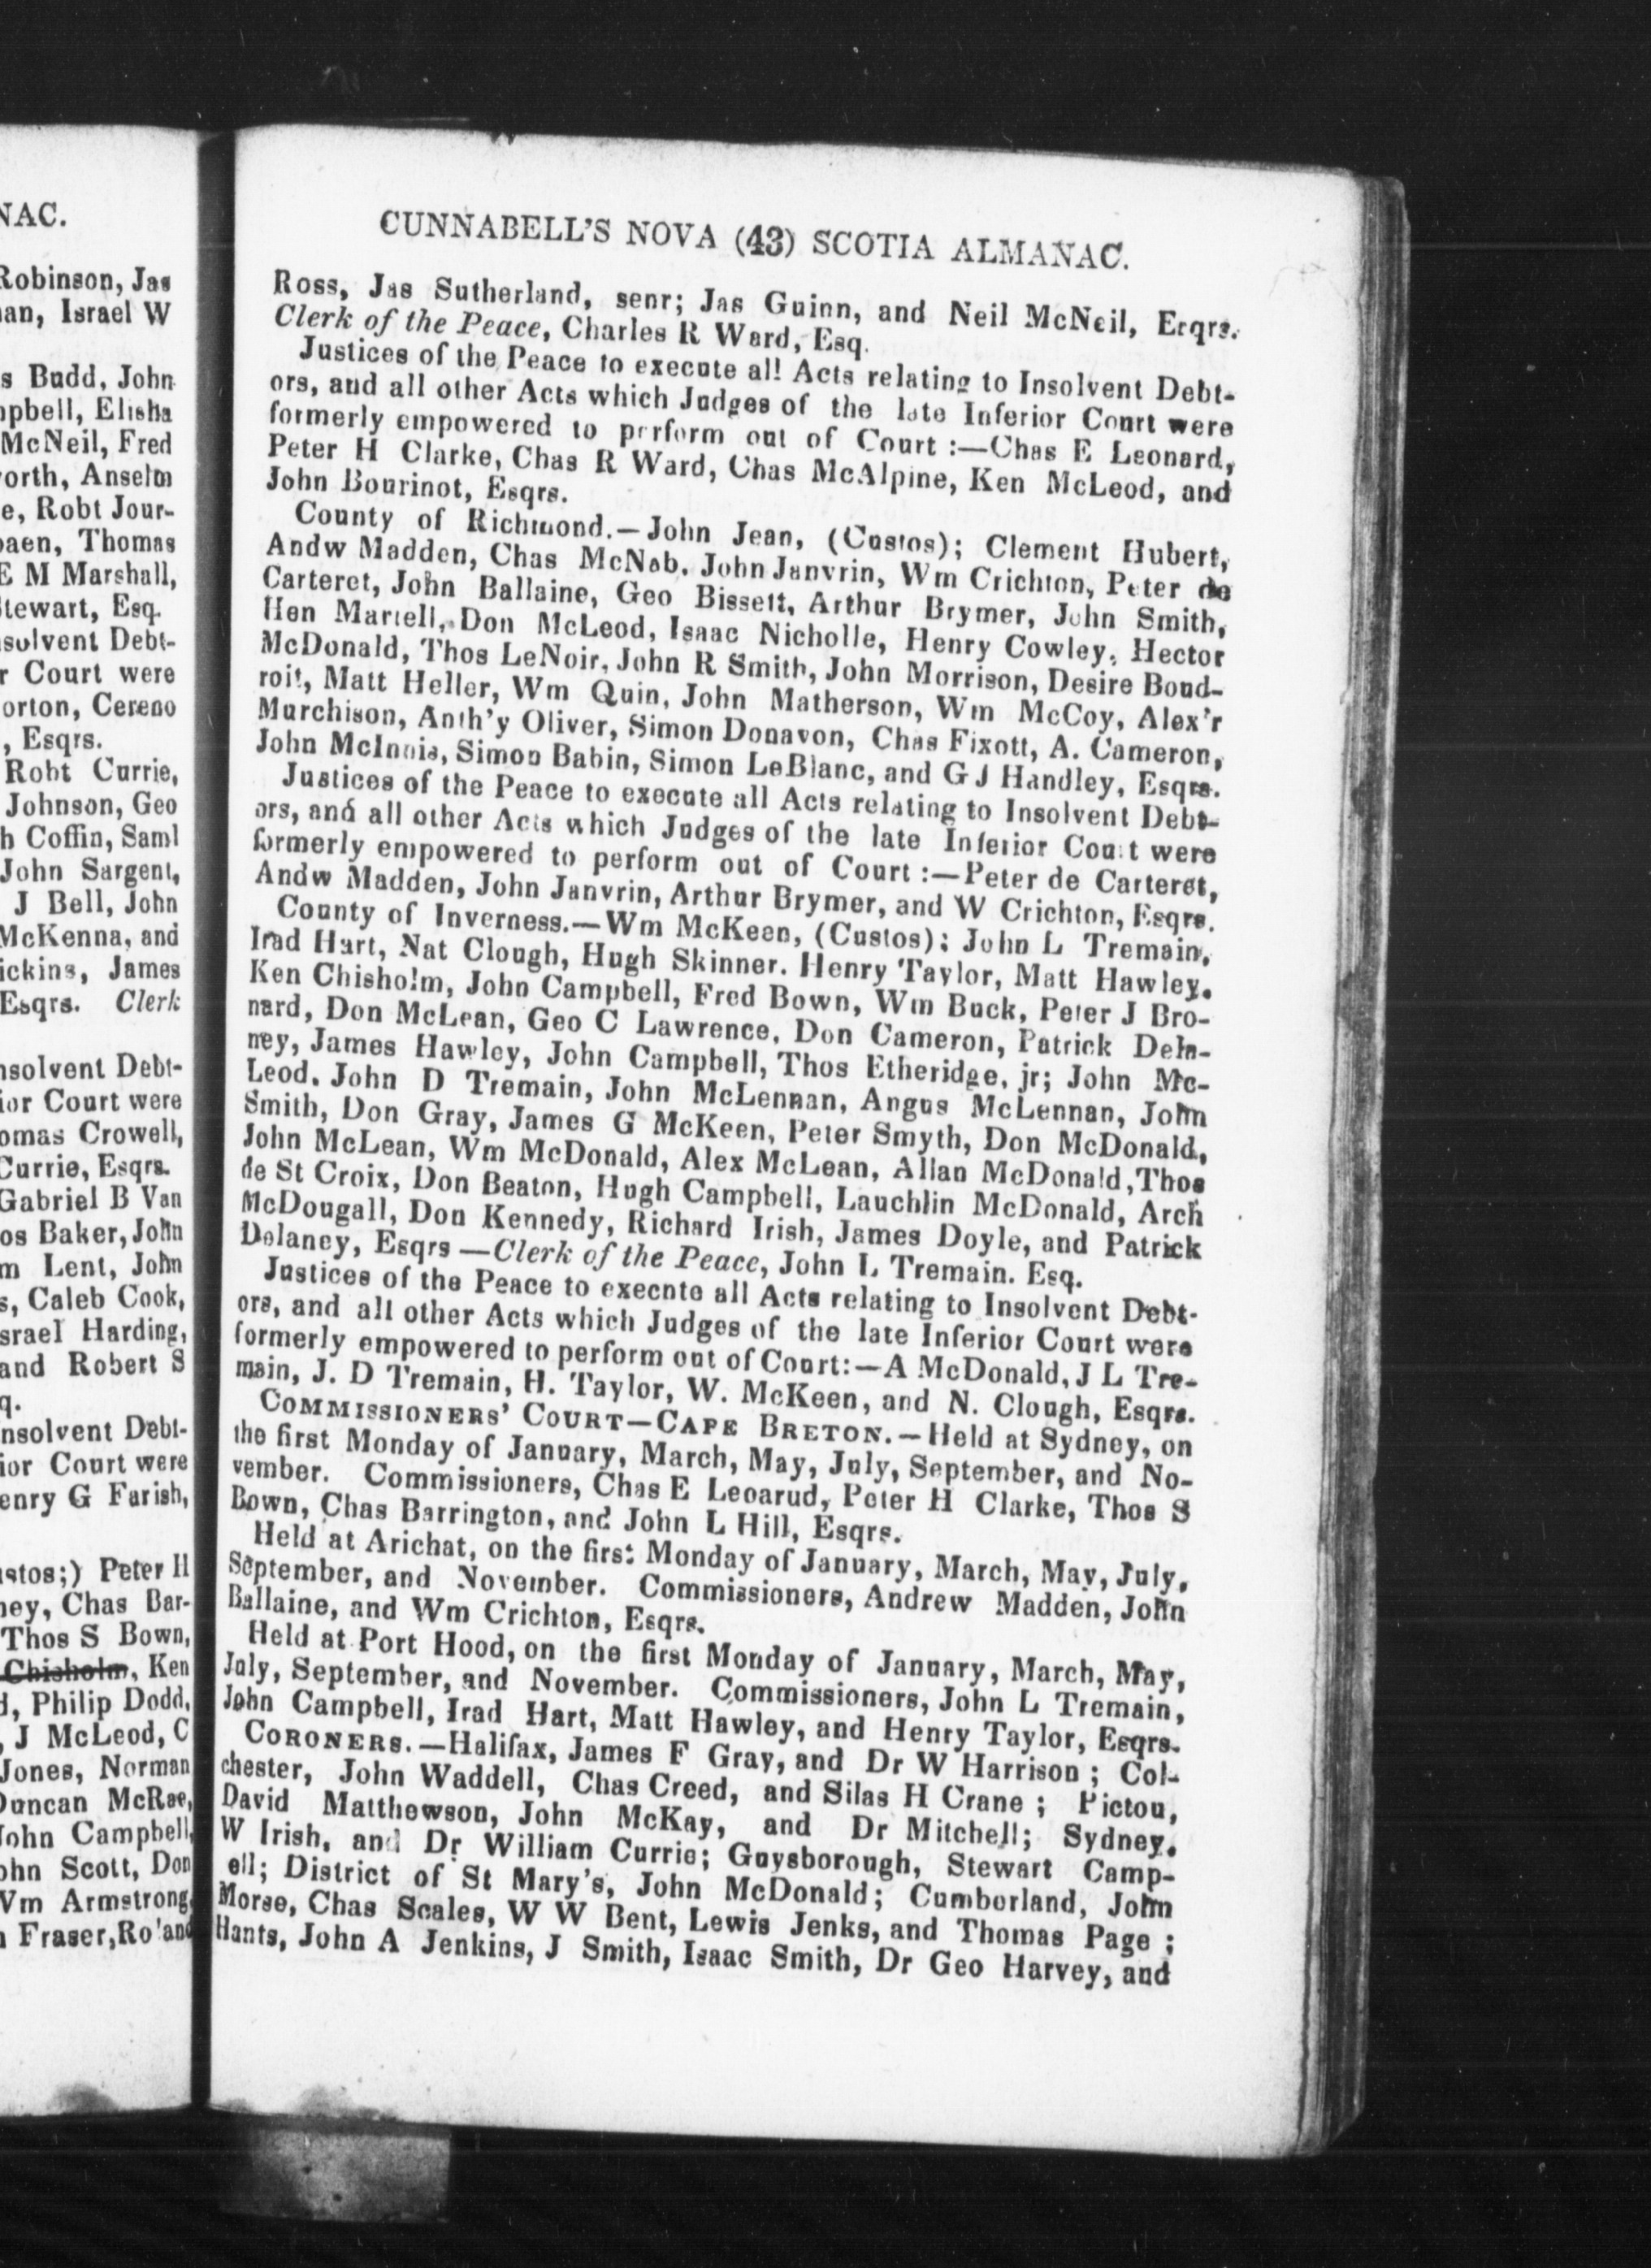 NAC.
Robinson, Jas
an, Israel W
s Budd, John
pbell, Elisha
McNeil, Fred
orth, Anselm
e, Robt Jour-
aen, Thomas
E M Marshall,
Stewart, Esq.
solvent Debt-
r Court were
orton, Cereno
, Esqrs.
Robt Currie,
Johnson, Geo
h Coffin, Saml
John Sargent,
J Bell, John
McKenna, and
ickins, James
Esqrs. Clerk
nsolvent Debt-
ior Court were
omas Crowell,
Currie, Esqrs.
Gabriel B Van
os Baker, John
m Lent, John
s, Caleb Cook,
srael Harding,
and Robert S
q.
nsolvent Debt-
ior Court were
enry G Farish,
stos;) Peter H
ney, Chas Bar-
Thos S Bown,
Chisholm, Ken
d, Philip Dodd,
, J McLeod, C
Jones, Norman
Duncan McRae,
John Campbell,
ohn Scott, Don
Wm Armstrong,
n Fraser, Roland
CUNNABELL'S NOVA (43) SCOTIA ALMANAC.
Ross, Jas Sutherland, senr; Jas Guinn, and Neil McNeil, Erqrs.
Clerk of the Peace, Charles R Ward, Esq.
Justices of the Peace to execute all Acts relating to Insolvent Debt-
ors, and all other Acts which Judges of the late Inferior Court were
formerly empowered to perform out of Court :—Chas E Leonard,
Peter H Clarke, Chas R Ward, Chas McAlpine, Ken McLeod, and
John Bourinot, Esqrs.
County of Richmond.—John Jean, (Custos); Clement Hubert,
Andw Madden, Chas McNab, John Janvrin, Wm Crichton, Peter de
Carteret, John Ballaine, Geo Bissett, Arthur Brymer, John Smith,
Hen Martell, Don McLeod, Isaac Nicholle, Henry Cowley, Hector
McDonald, Thos LeNoir, John R Smith, John Morrison, Desire Boud-
roit, Matt Heller, Wm Quin, John Matherson, Wm McCoy, Alex'r
Murchison, Anth'y Oliver, Simon Donavon, Chas Fixott, A. Cameron,
John McInnis, Simon Babin, Simon LeBlanc, and G J Handley, Esqrs.
Justices of the Peace to execute all Acts relating to Insolvent Debt-
ors, and all other Acts which Judges of the late Inferior Court were
formerly empowered to perform out of Court :—Peter de Carteret,
Andw Madden, John Janvrin, Arthur Brymer, and W Crichton, Esqrs.
County of Inverness.—Wm McKeen, (Custos); John L Tremain,
Irad Hart, Nat Clough, Hugh Skinner. Henry Taylor, Matt Hawley.
Ken Chisholm, John Campbell, Fred Bown, Wm Buck, Peter J Bro-
nard, Don McLean, Geo C Lawrence, Don Cameron, Patrick Dela-
ney, James Hawley, John Campbell, Thos Etheridge, jr; John Mc-
Leod, John D Tremain, John McLennan, Angus McLennan, John
Smith, Don Gray, James G McKeen, Peter Smyth, Don McDonald,
John McLean, Wm McDonald, Alex McLean, Allan McDonald, Thos
de St Croix, Don Beaton, Hugh Campbell, Lauchlin McDonald, Arch
McDougall, Don Kennedy, Richard Irish, James Doyle, and Patrick
Delaney, Esqrs —Clerk of the Peace, John L Tremain. Esq.
Justices of the Peace to execnte all Acts relating to Insolvent Debt-
ors, and all other Acts which Judges of the late Inferior Court were
formerly empowered to perform out of Court:—A McDonald, J L Tre-
main, J. D Tremain, H. Taylor, W. McKeen, and N. Clough, Esqrs.
COMMISSIONERS' COURT—CAPE BRETON.—Held at Sydney, on
the first Monday of January, March, May, July, September, and No-
vember. Commissioners, Chas E Leoarud, Peter H Clarke, Thos S
Bown, Chas Barrington, and John L Hill, Esqrs.
Held at Arichat, on the first Monday of January, March, May, July,
September, and November. Commissioners, Andrew Madden, John
Ballaine, and Wm Crichton, Esqrs.
Held at Port Hood, on the first Monday of January, March, May,
July, September, and November. Commissioners, John L Tremain,
John Campbell, Irad Hart, Matt Hawley, and Henry Taylor, Esqrs.
CORONERS.—Halifax, James F Gray, and Dr W Harrison ; Col-
chester, John Waddell, Chas Creed, and Silas H Crane ; Pictou,
David Matthewson, John McKay, and Dr Mitchell; Sydney,
W Irish, and Dr William Currie; Guysborough, Stewart Camp-
ell; District of St Mary's, John McDonald; Cumberland, John
Morse, Chas Scales, W W Bent, Lewis Jenks, and Thomas Page ;
Hants, John A Jenkins, J Smith, Isaac Smith, Dr Geo Harvey, and